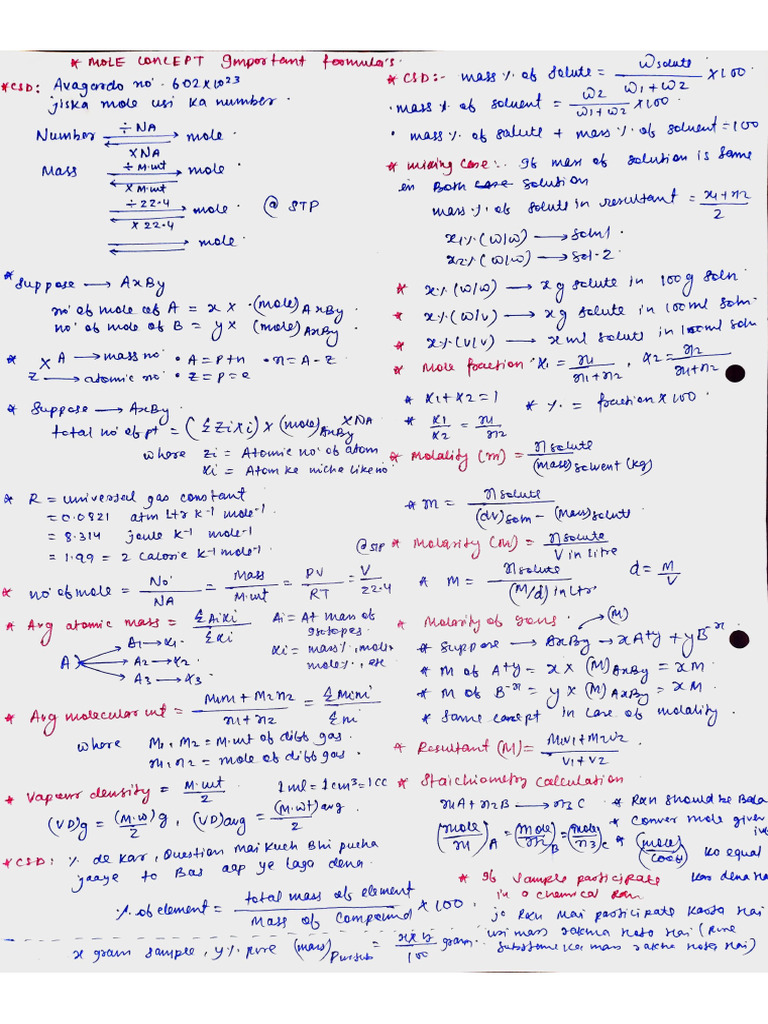 * MOLE CONCEPT Important formula's.
*CSD: Avagardo no. 602X10²³
jiska mole usi ka number.
Number ÷NA ×NA mole.
Mass ÷M.wt × M.wt mole.
÷22.4 × 22.4 mole. @ STP
mole.
* Suppose → AxBy
no. of mole of A = x × (mole)AxBy
no. of mole of B = y × (mole)AxBy
* X A → mass no. • A = P+n • n = A-Z.
Z → atomic no. • Z = p = e
* Suppose → AxBy.
total no. of pt = (ΣZiXi) × (mole)AxBy XNA
where Zi = Atomic no. of atom
Xi = Atom ke niche likeno.
* R = universal gas constant
= 0.0821 atm Ltr K-1 mole-1
= 8.314 joule K-1 mole-1
= 1.99 = 2 Calorie K-1 mole-1
@STP
* no. of mole = No./NA = Mass/M.wt = PV/RT = V/22.4
* Avg atomic mass = ΣAixi/Σxi Ai = At mass of isotopes.
A A1→x1. A2→x2. A3→x3. xi = mass%, mole, mole%, etc
* Avg molecular wt = M1n1 + M2n2/n1+n2 = ΣMini/Σni
where M1, M2 = M.wt of diff gas.
n1, n2 = mole of diff gas.
* Vapour density = M.wt/2 1ml = 1cm³ = 1cc
(VD)g = (M.w)g/2, (VD)avg = (M.wt)avg/2
*CSD: % de kar, Question mai kuch Bhi pucha
jaaye to Bas aap ye laga dena.
%. of element = total mass of element/Mass of Compound × 100
x gram sample, y% pure (mass) = x×y/100 gram.
* CSD:- mass % of solute = Wsolute/W1+W2 ×100
• mass % of solvent = W2/W1+W2 ×100.
• mass % of solute + mass % of solvent = 100
* mixing case:. If mass of solution is same
in Both case solution
mass % of solute in resultant = x1+x2/2
x1%(w/w) → soln1.
x2%(w/w) → sol-2.
* x%(w/w) → x g solute in 100g soln.
* x%(w/v) → x g solute in 100ml soln.
* x%(v/v) → x ml solute in 100ml soln
* Mole fraction x1 = n1/n1+n2, x2 = n2/n1+n2
* x1+x2=1
* x1/x2 = n1/n2 * %. = fraction × 100.
* Molality (m) = nsolute/(mass)solvent (kg)
* m = nsolute/(dv)soln − (Mass)solute
* Molarity (M) = nsolute/V in litre
* M = nsolute/(M/d) in Ltr. d = M/V
* Molarity of ions. (M)
* Suppose → AxBy → xA+y + yB-x
* M of A+y = x × (M)AxBy = xM.
* M of B-x = y × (M)AxBy = xM.
* Same concept in case of molality.
* Resultant (M) = M1V1+M2V2/V1+V2
* Stoichiometry Calculation
n1A + n2B → n3C * Rxn should be Bala
* Conver mole given
(mole/n1)A = (mole/n2)B = (mole/n3)C * (mole/coeff) ko equal
kar dena Ha
* If sample participate
in a chemical Rxn
jo Rxn mai participate karta Hai
usi mass rakhna Hota Hai (Pure
substane ka mass rakhna Hota Hai)